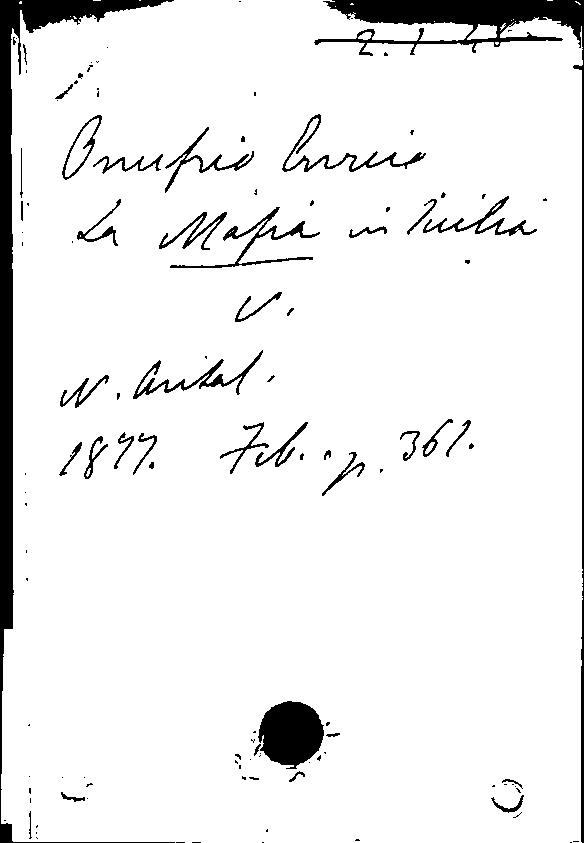 2. 1 28.
Onufrio Enrico
La Mafia in Sicilia
V.
N. Antol.
1877. Feb. p. 361.